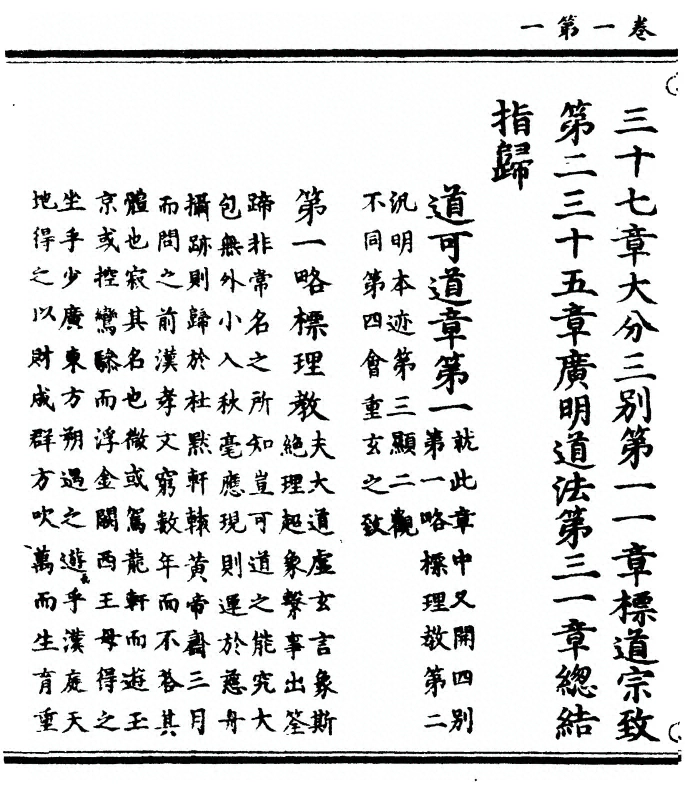 卷一第一
三十七章大分三別第一一章標道宗致
第二三十五章廣明道法第三一章總結
指歸
道可道章第一
就此章中又開四別
第一略標理教第二
汎明本迹第三顯二觀
不同第四會重玄之致
第一略標理教
夫大道虛玄言象斯
絶理超象繫事出筌
蹄非常名之所知豈可道之能究大
包無外小入秋毫應現則運於慈舟
攝跡則歸於杜默軒轅黃帝齋三月
而問之前漢孝文窮數年而不啓其
體也寂其名也微或駕龍軒而遊玉
京或控鸞驂而浮金闕西王母得之
坐乎少廣東方朔遇之遊乎漢庭天
地得之以財成群方吹萬而生育重